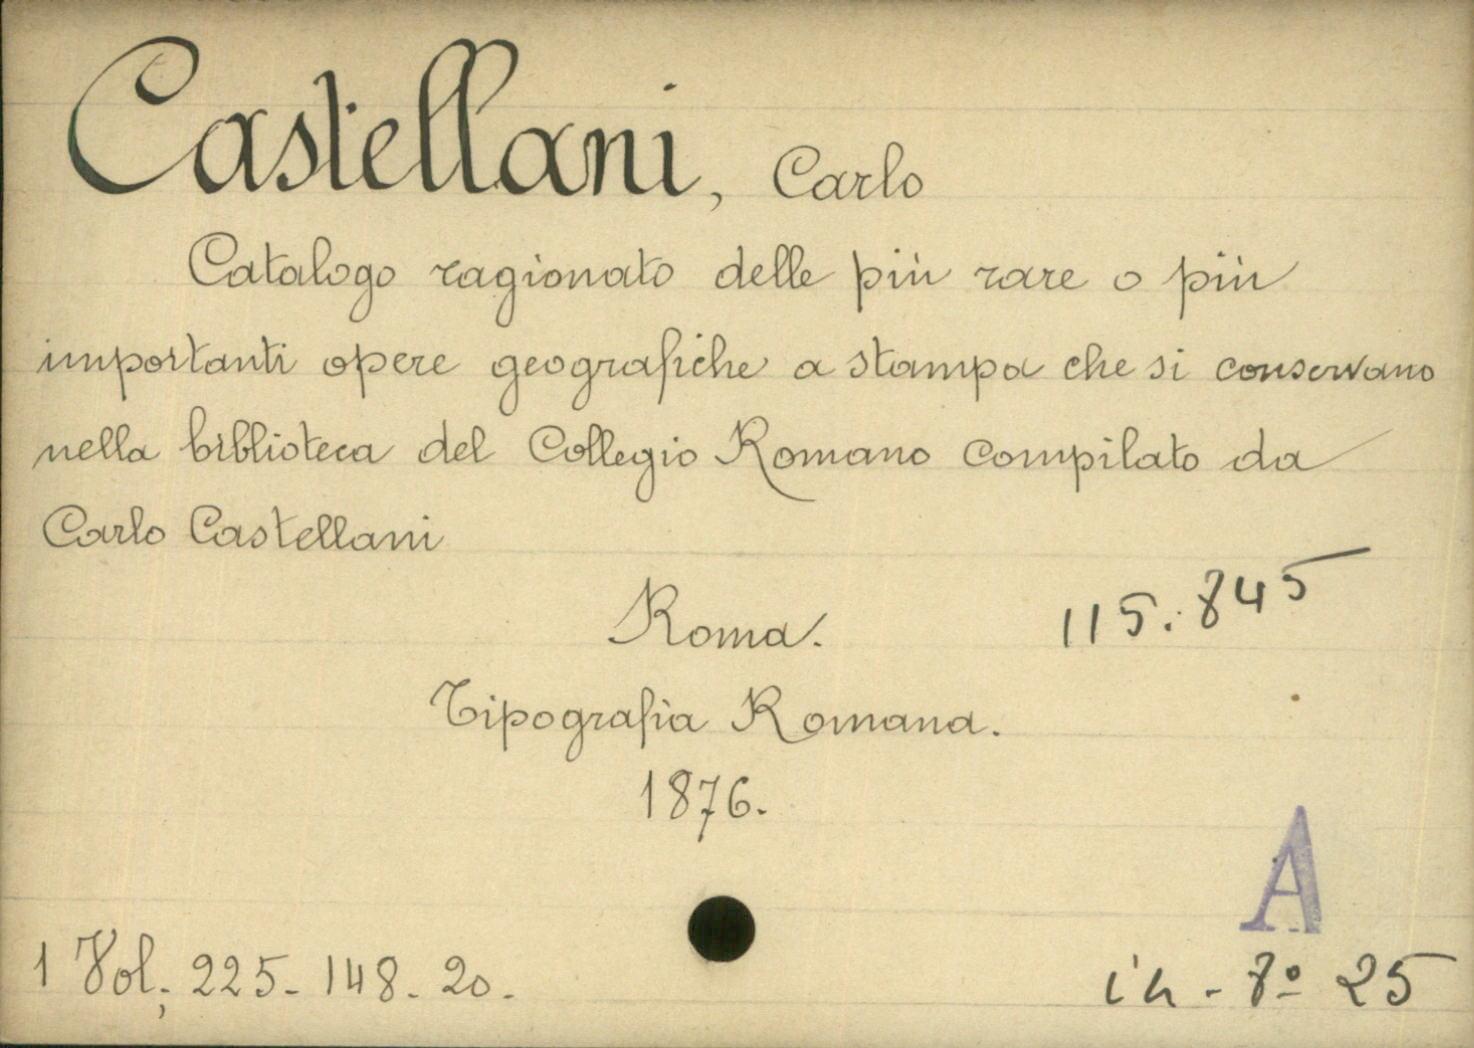 Castellani, Carlo
Catalogo ragionato delle più rare o più
importanti opere geografiche a stampa che si conservano
nella biblioteca del Collegio Romano compilato da
Carlo Castellani
Roma.
115.845
Tipografia Romana.
1876.
A
1 Vol; 225-148-20.
in-8º 25